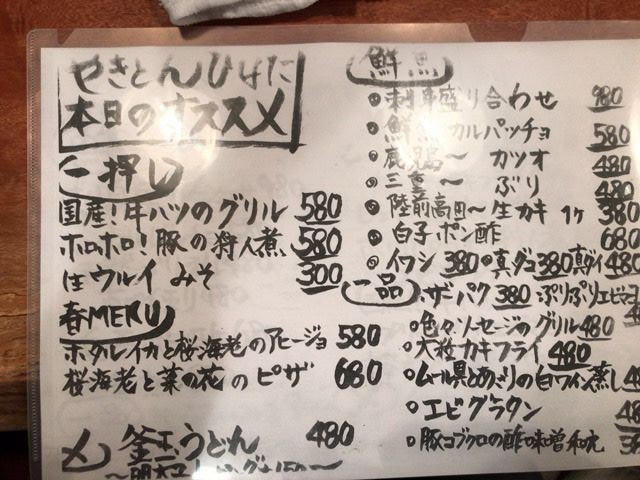 やきとんひなた
本日のオススメ
一押し
国産!牛ハツのグリル 580
ホロホロ!豚の狩人煮 580
生ウルイ みそ 300
春MENU
ホタルイカと桜海老のアヒージョ 580
桜海老と菜の花のピザ 680
〆 釜玉うどん 480
鮮魚
刺身盛り合わせ 980
鮮魚カルパッチョ 580
鹿児島〜カツオ 480
三重〜ぶり 480
陸前高田〜生カキ 1ヶ 380
白子ポン酢 680
イワシ 380 真ダコ 380 真ダイ 480
一品
ポザーパク 380 ぷりぷりエビマヨ
色々ソーセージのグリル 480
大粒カキフライ 480
ムール貝とあさりの白ワイン蒸し
エビグラタン
豚コブクロの酢味噌和え